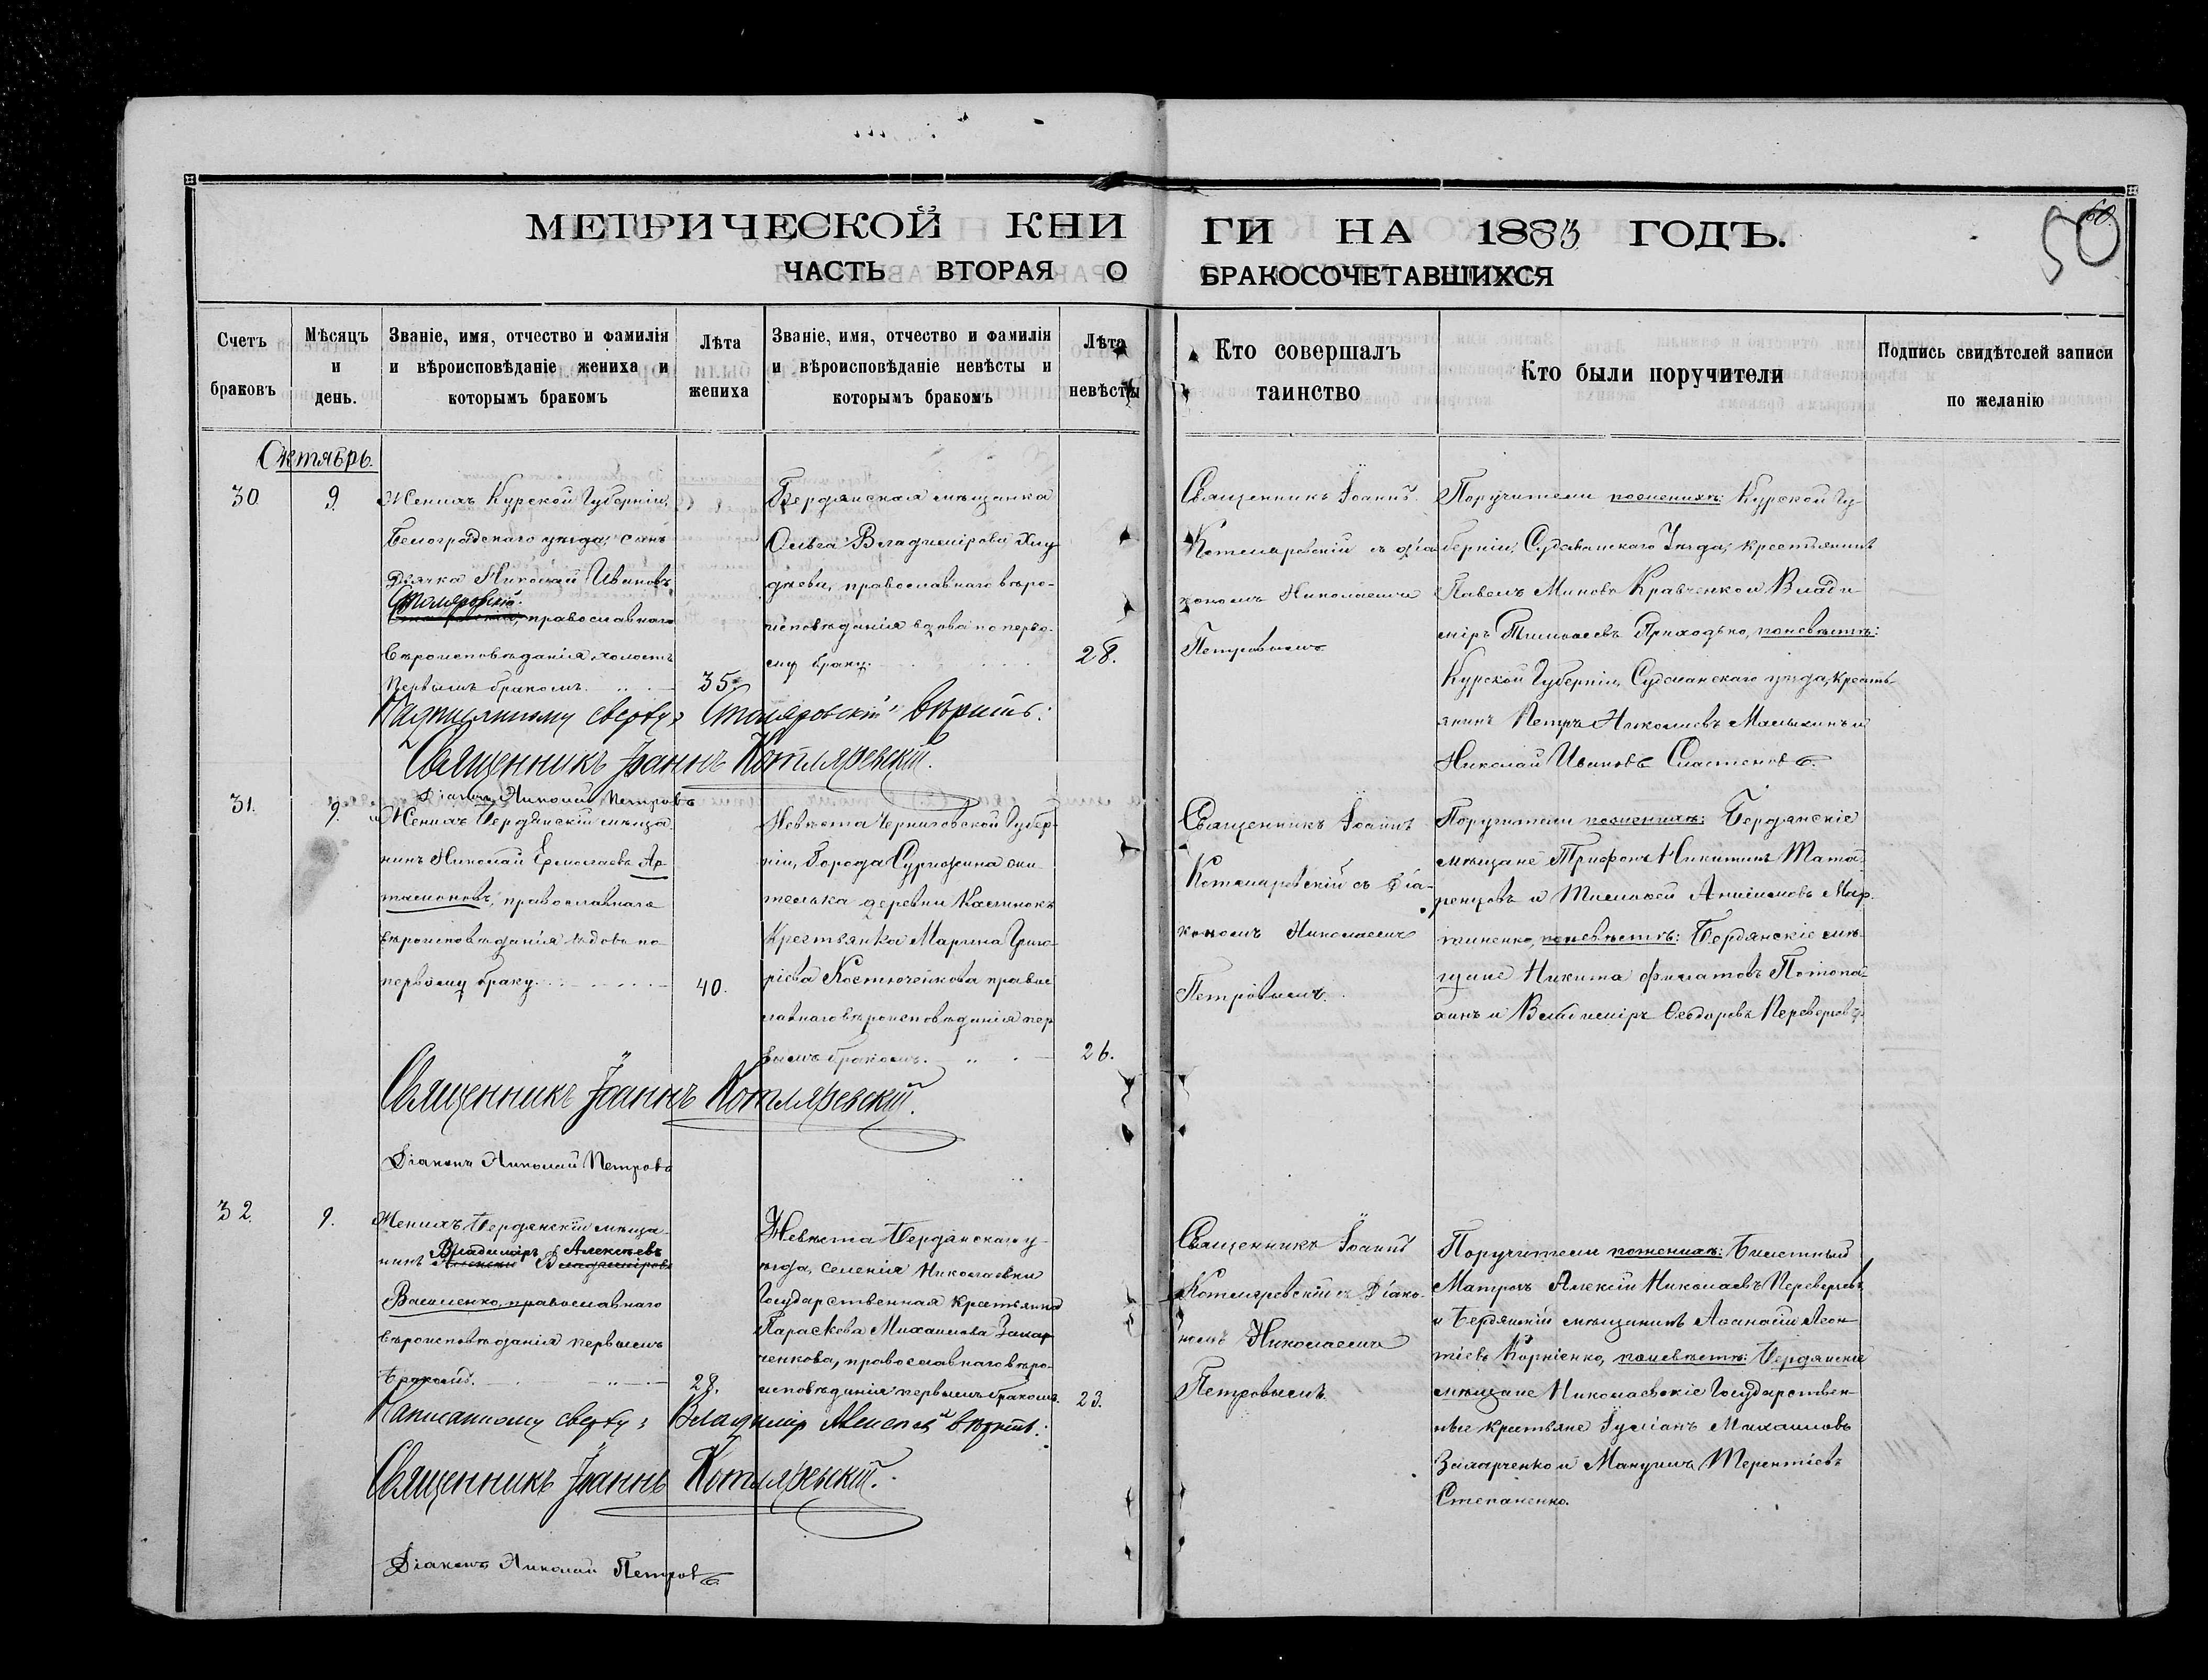 МЕТРИЧЕСКОЙ КНИГИ НА 1883 ГОДЪ.
ЧАСТЬ ВТОРАЯ О БРАКОСОЧЕТАВШИХСЯ
50
60.
Счетъ браковъ
Мѣсяцъ и день.
Званіе, имя, отчество и фамилія
и вѣроисповѣданіе жениха и
которымъ бракомъ
Лѣта жениха
Званіе, имя, отчество и фамилія
и вѣроисповѣданіе невѣсты и
которымъ бракомъ
Лѣта невѣсты
Кто совершалъ
таинство
Кто были поручители
Подпись свидѣтелей записи
по желанію
Октябрь.
30.
9.
Женихъ Курской Губерніи,
Белоградскаго уѣзда, сынъ
Дьячка Николай Ивановъ
Столяровскій
православнаго
вѣроисповѣданія, холостъ
первымъ бракомъ.
35.
Бердянская мѣщанка
Ольга Владимірова
православнаго вѣро-
исповѣданія вдова по перво-
му браку.
28.
Священникъ Іоаннъ
Котляревскій съ діа-
кономъ Николаемъ
Петровымъ
Поручители по женихѣ: Курской Гу-
берніи, Суджанскаго Уѣзда, крестьянинъ
Павелъ Миновъ Кравченко и Влади
міръ Тимофеевъ Приходько, по невѣстѣ:
Курской Губерніи, Суджанскаго уѣзда, кресть-
янинъ Петръ Николаевъ Малыхинъ и
Николай Ивановъ Сластеновъ.
Надписанному сверху: Столяровскій вѣрить:
Священникъ Іоаннъ Котляревскій.
Діаконъ Николай Петровъ
31.
9.
Женихъ Бердянскій мѣща
нинъ Николай Ермолаевъ Ар-
тамоновъ, православнаго
вѣроисповѣданія вдовъ по
первому браку.
40.
Невѣста Черниговской Губер-
ніи, Города Суража жи-
телька деревни
Крестьянка Марина Григо-
ріева Костюченкова правос
лавнаго вѣроисповѣданія пер
вымъ бракомъ.
26.
Священникъ Іоаннъ
Котляревскій съ Діа-
кономъ Николаемъ
Петровымъ.
Поручители по женихѣ: Бердянскіе
мѣщане Трифонъ Никитинъ Тата-
ренцовъ и Тимофей Анисимовъ Мар
тиненко, по невѣстѣ: Бердянскіе мѣ-
щане Никита Филатовъ Потопа-
хинъ и Владиміръ Ѳедоровъ Переверзовъ
Священникъ Іоаннъ Котляревскій.
Діаконъ Николай Петровъ
32.
9.
Женихъ Бердянскій мѣща-
Владиміръ Алексѣевъ
нинъ Алексѣй Владиміровъ
Василенко, православнаго
вѣроисповѣданія первымъ
бракомъ.
28.
Невѣста Бердянскаго у-
ѣзда, селенія Николаевки
Государственная крестьянка
Параскева Михаилова Захар
ченкова, православнаго вѣро-
исповѣданія первымъ бракомъ.
23.
Священникъ Іоаннъ
Котляревскій съ Діако-
номъ Николаемъ
Петровымъ.
Поручители по женихѣ: Билетный
Матросъ Алексій Николаевъ Переверзевъ
и Бердянскій мѣщанинъ Аѳанасій Леон
тіевъ Корніенко, по невѣстѣ: Бердянскіе
мѣщане Николаевскіе Государствен-
ные крестьяне Іуліанъ Михаиловъ
Захарченко и Мануилъ Терентіевъ
Степаненко.
Написанному сверху: Владиміръ Алексѣевъ вѣрить:
Священникъ Іоаннъ Котляревскій.
Діаконъ Николай Петровъ